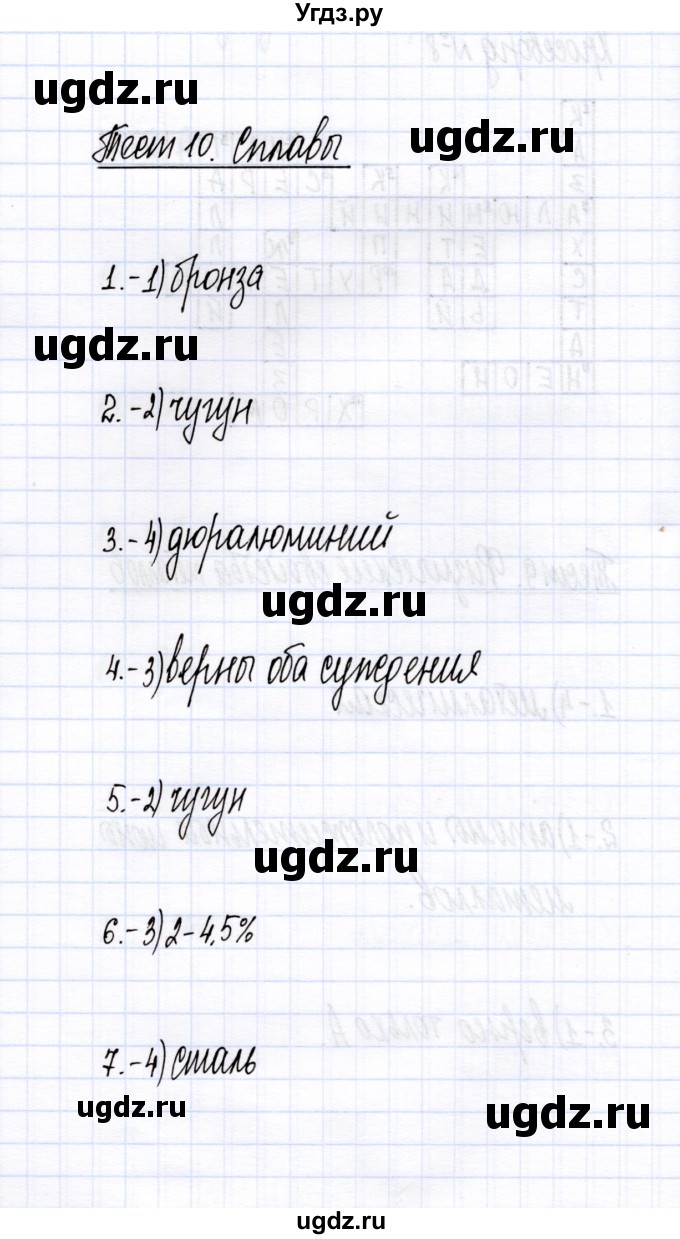 Угдз.ру
ugdz.ru
ugdz.ru
Тест 10. Сплавы
1.-1) бронза
ugdz.ru
2.-2) чугун
3.-4) дюралюминий
ugdz.ru
4.-3) верны оба суждения
5.-2) чугун
ugdz.ru
6.-3) 2-4,5%
7.-4) сталь
ugdz.ru
ugdz.ru
ugdz.ru